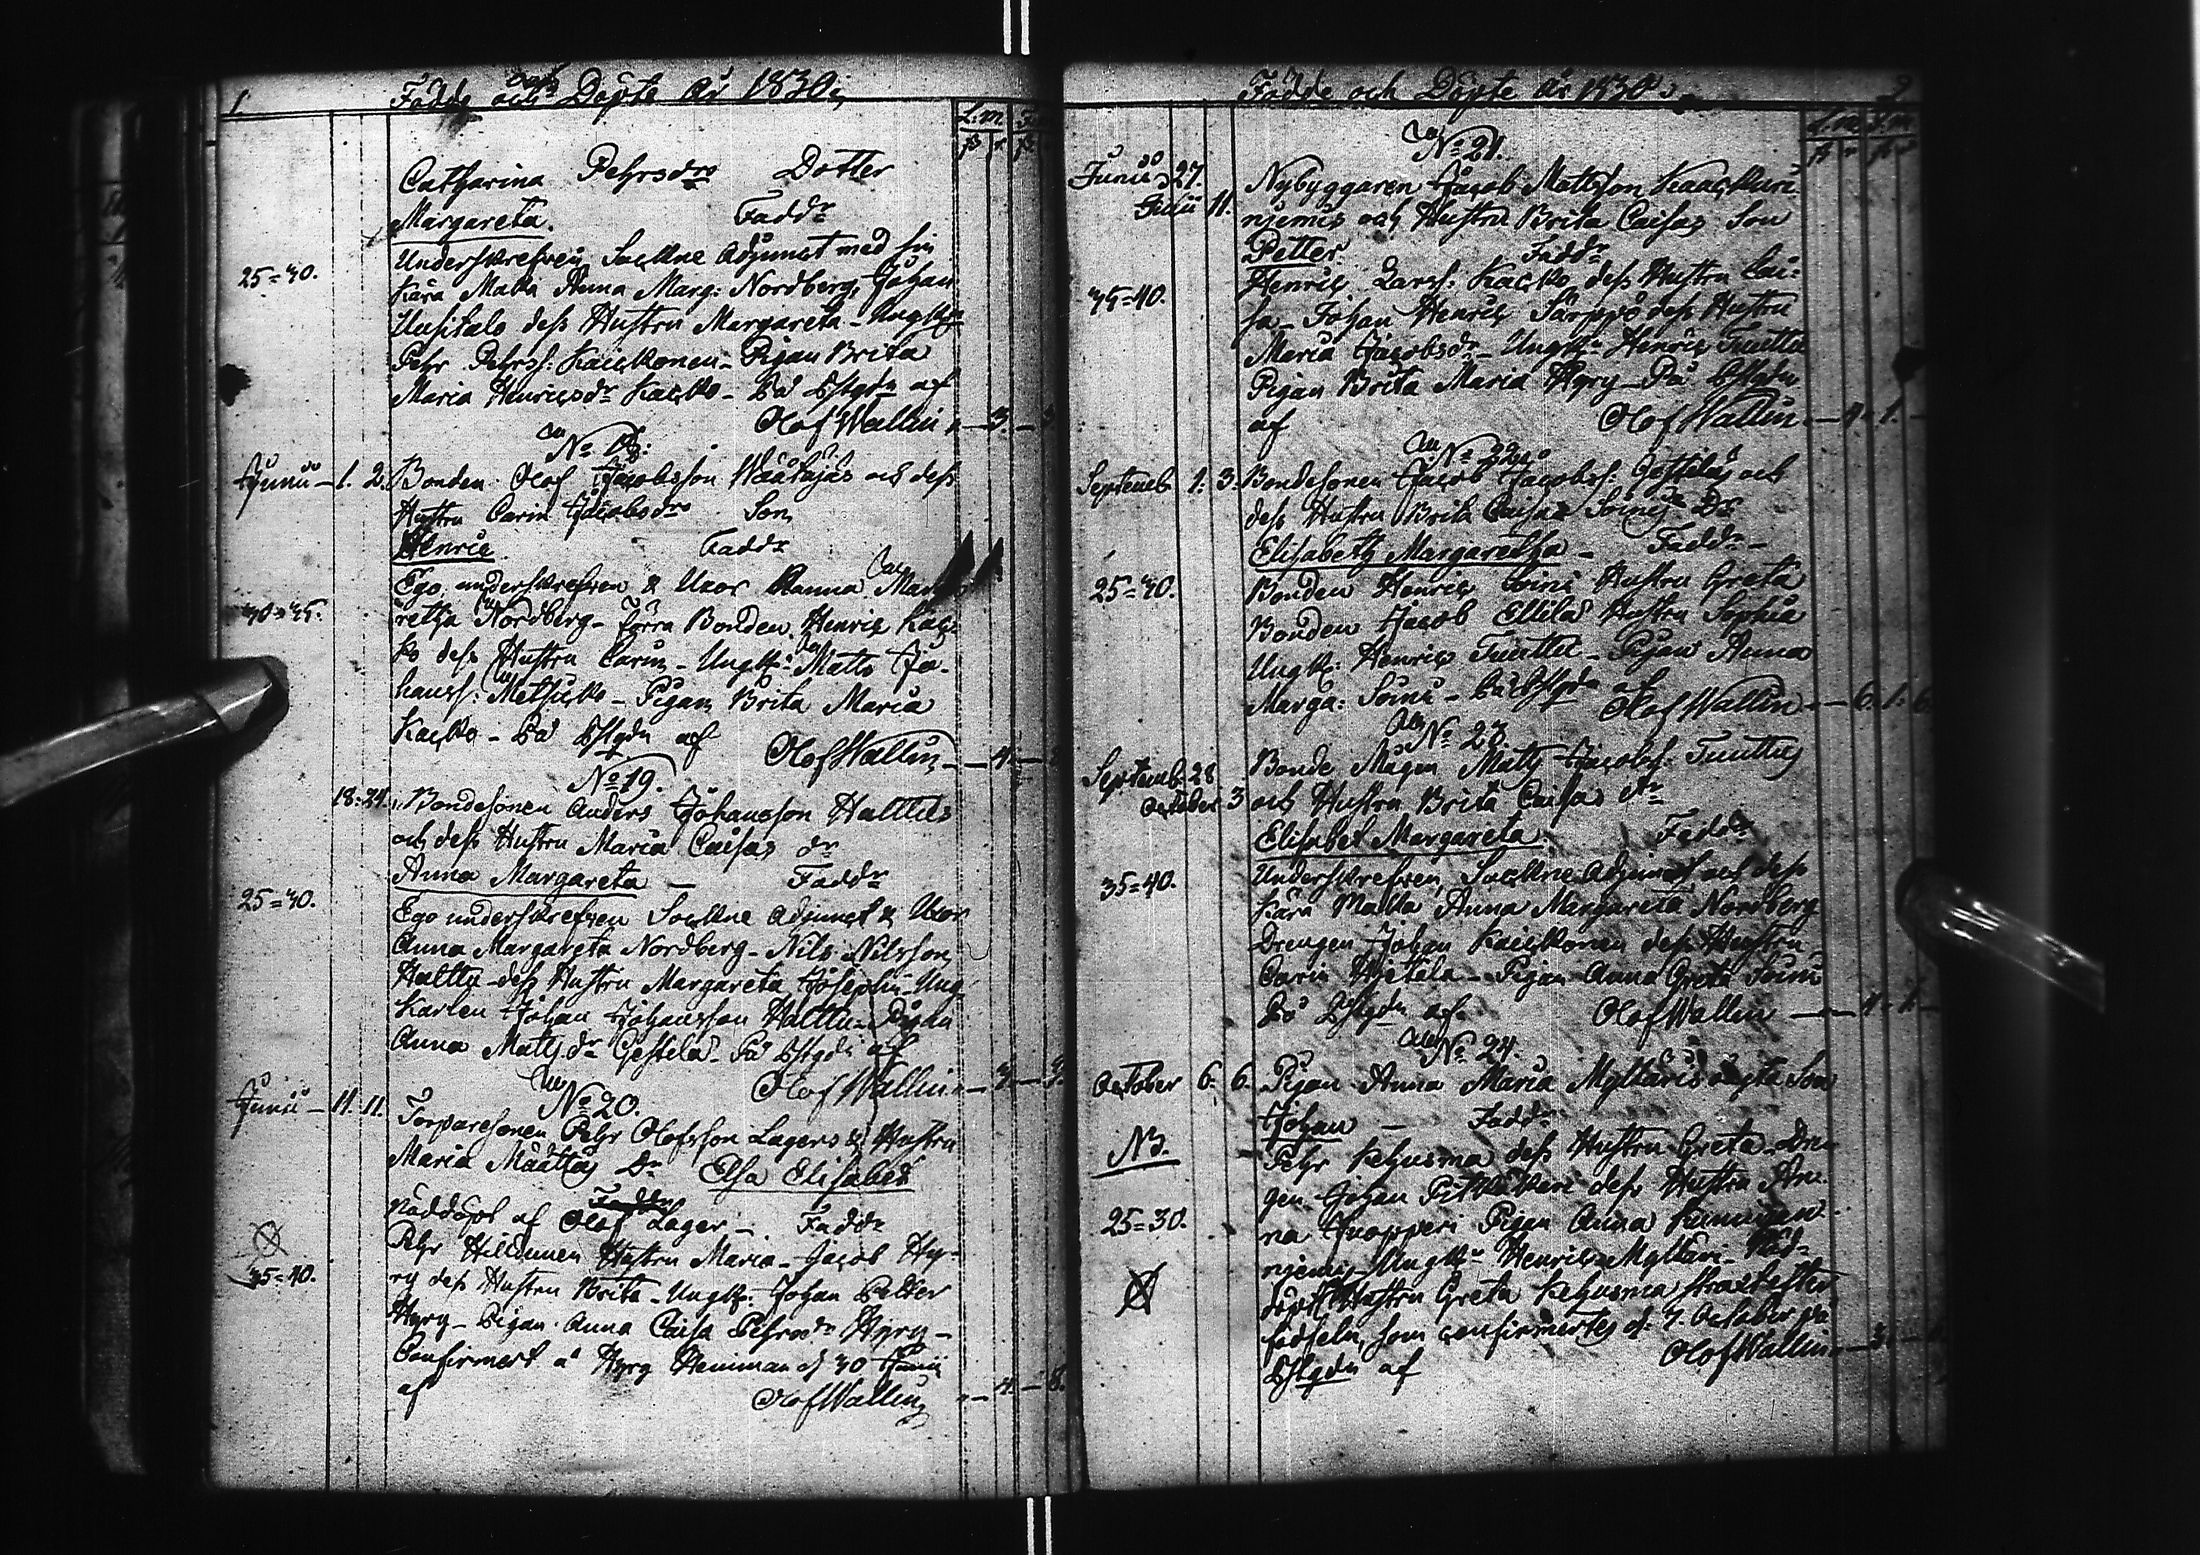 1.
Födde och Döpte År 1830;
L.m.
Catharina Pehrsdr Dotter
Margareta. Fadd:r
Underskrefven, Sackne Adjunct med sin
25=30.
Kära Maka Anna Marg: Nordberg, Johan
Uusitalo dess Hustru Margareta - Ungk:
Pehr Pehrss: Kaickonen - Pigan Brita
Maria Henricsdr Kacko - På Ästgdn af
Olof Wallin - 3. -
No 18.
Junii - 1. 2. Bonden Olof Jacobsson Wäätäjäs och dess
Hustru Carin Jacobsdr Son
Henric Fadd:r
Ego underskrefven & Uxor Anna Marga
30=35.
retha Nordberg - Förra Bonden Henric Kac-
ko dess Hustru Carin - Ungk: Matts Jo-
hanss: - Pigan Brita Maria
Kacko - På Ästgdn af
Olof Wallin - 4 -
No 19.
18. 24. Bondesonen Anders Johansson Halttus
och dess Hustru Maria Caisas dr
Anna Margareta - Fadd:r
25=30.
Ego underskrefven Sackne Adjunct & Uxor
Anna Margareta Nordberg - Nils Nilsson
Halttu - dess Hustru Margareta Josephin - Ung-
karlen Johan Johansson Halttu - Pigan
Anna Mats dr - På Ästgdn af
Olof Wallin - 3 - 3.
No 20.
Junii - 11. 11. Torparesonen Pehr Olofsson Lagers & Hustru
Maria Määttäs Dr Elsa Elisabet
Nöddöpt af Olof Lager - Fadd:r
Pehr Hiltunen Hustru Maria - Jacob Hy-
35=40.
ry dess Hustru Brita - Ungk: Johan Petter
Hyry - Pigan Anna Caisa Pehrsdr Hyry -
Confirmert å Hyry Hemman d 30 Junii
af Olof Wallin - 4 - 8.
Födde och Döpte År 1830;
L.m.
No 21.
Junii 27.
Julii 11.
Nybyggaren Jacob Mattsson Kaackuri-
niemis och Hustru Brita Caisas Son
Petter. Fadd:r
35=40.
Henric Larss: Kacko dess Hustru Cai-
sa - Johan Henric Särppö dess Hustru
Maria Jacobsdr - Ungk: Henric Tuuttu
Pigan Brita Maria Hyry - På Ästgdn
af Olof Wallin - 4 - 1. -
No 22.
Septemb 1. 3. Bondesonen Jacob Jacobss: och
dess Hustru Brita Caisas Soinis Dr
Elisabeth Margaretha - Fadd:r -
25=30.
Bonden Henric Soini Hustru Greta
Bonden Jacob Ellilä Hustru Sophia
Ungk: Henric Tuuttu - Pigan Anna
Marga: Soini - På Ästgdn af
Olof Wallin - 6. 1. 6
No 23
Septemb. 28
October 3
Bonde Mågen Matts Jacobss: Tuuttus
och Hustru Brita Caisas dr
Elisabet Margareta Fadd:r
35=40.
Underskrefven, Sackne Adjunct och dess
Kära Maka Anna Margareta Nordberg
Drengen Johan Kaickonen dess Hustru
Carin Hietala - Pigan Anna Greta
På Ästgdn af Olof Wallin - 4 - 1 -
No 24.
October 6. 6. Pigan Anna Maria Myllaris oägta Son
Johan - Fadd:r
NB.
Pehr Kehusmaa dess Hustru Greta - Dren-
gen Johan dess Hustru An-
25=30.
na Juopperi Pigan Anna
niemi - Ungk: Henric Myllari - Nöd-
döpt Hustru Greta Kehusmaa strax efter
födseln, som confirmertes d. 7 October på
Ästgdn af Olof Wallin - 3 -